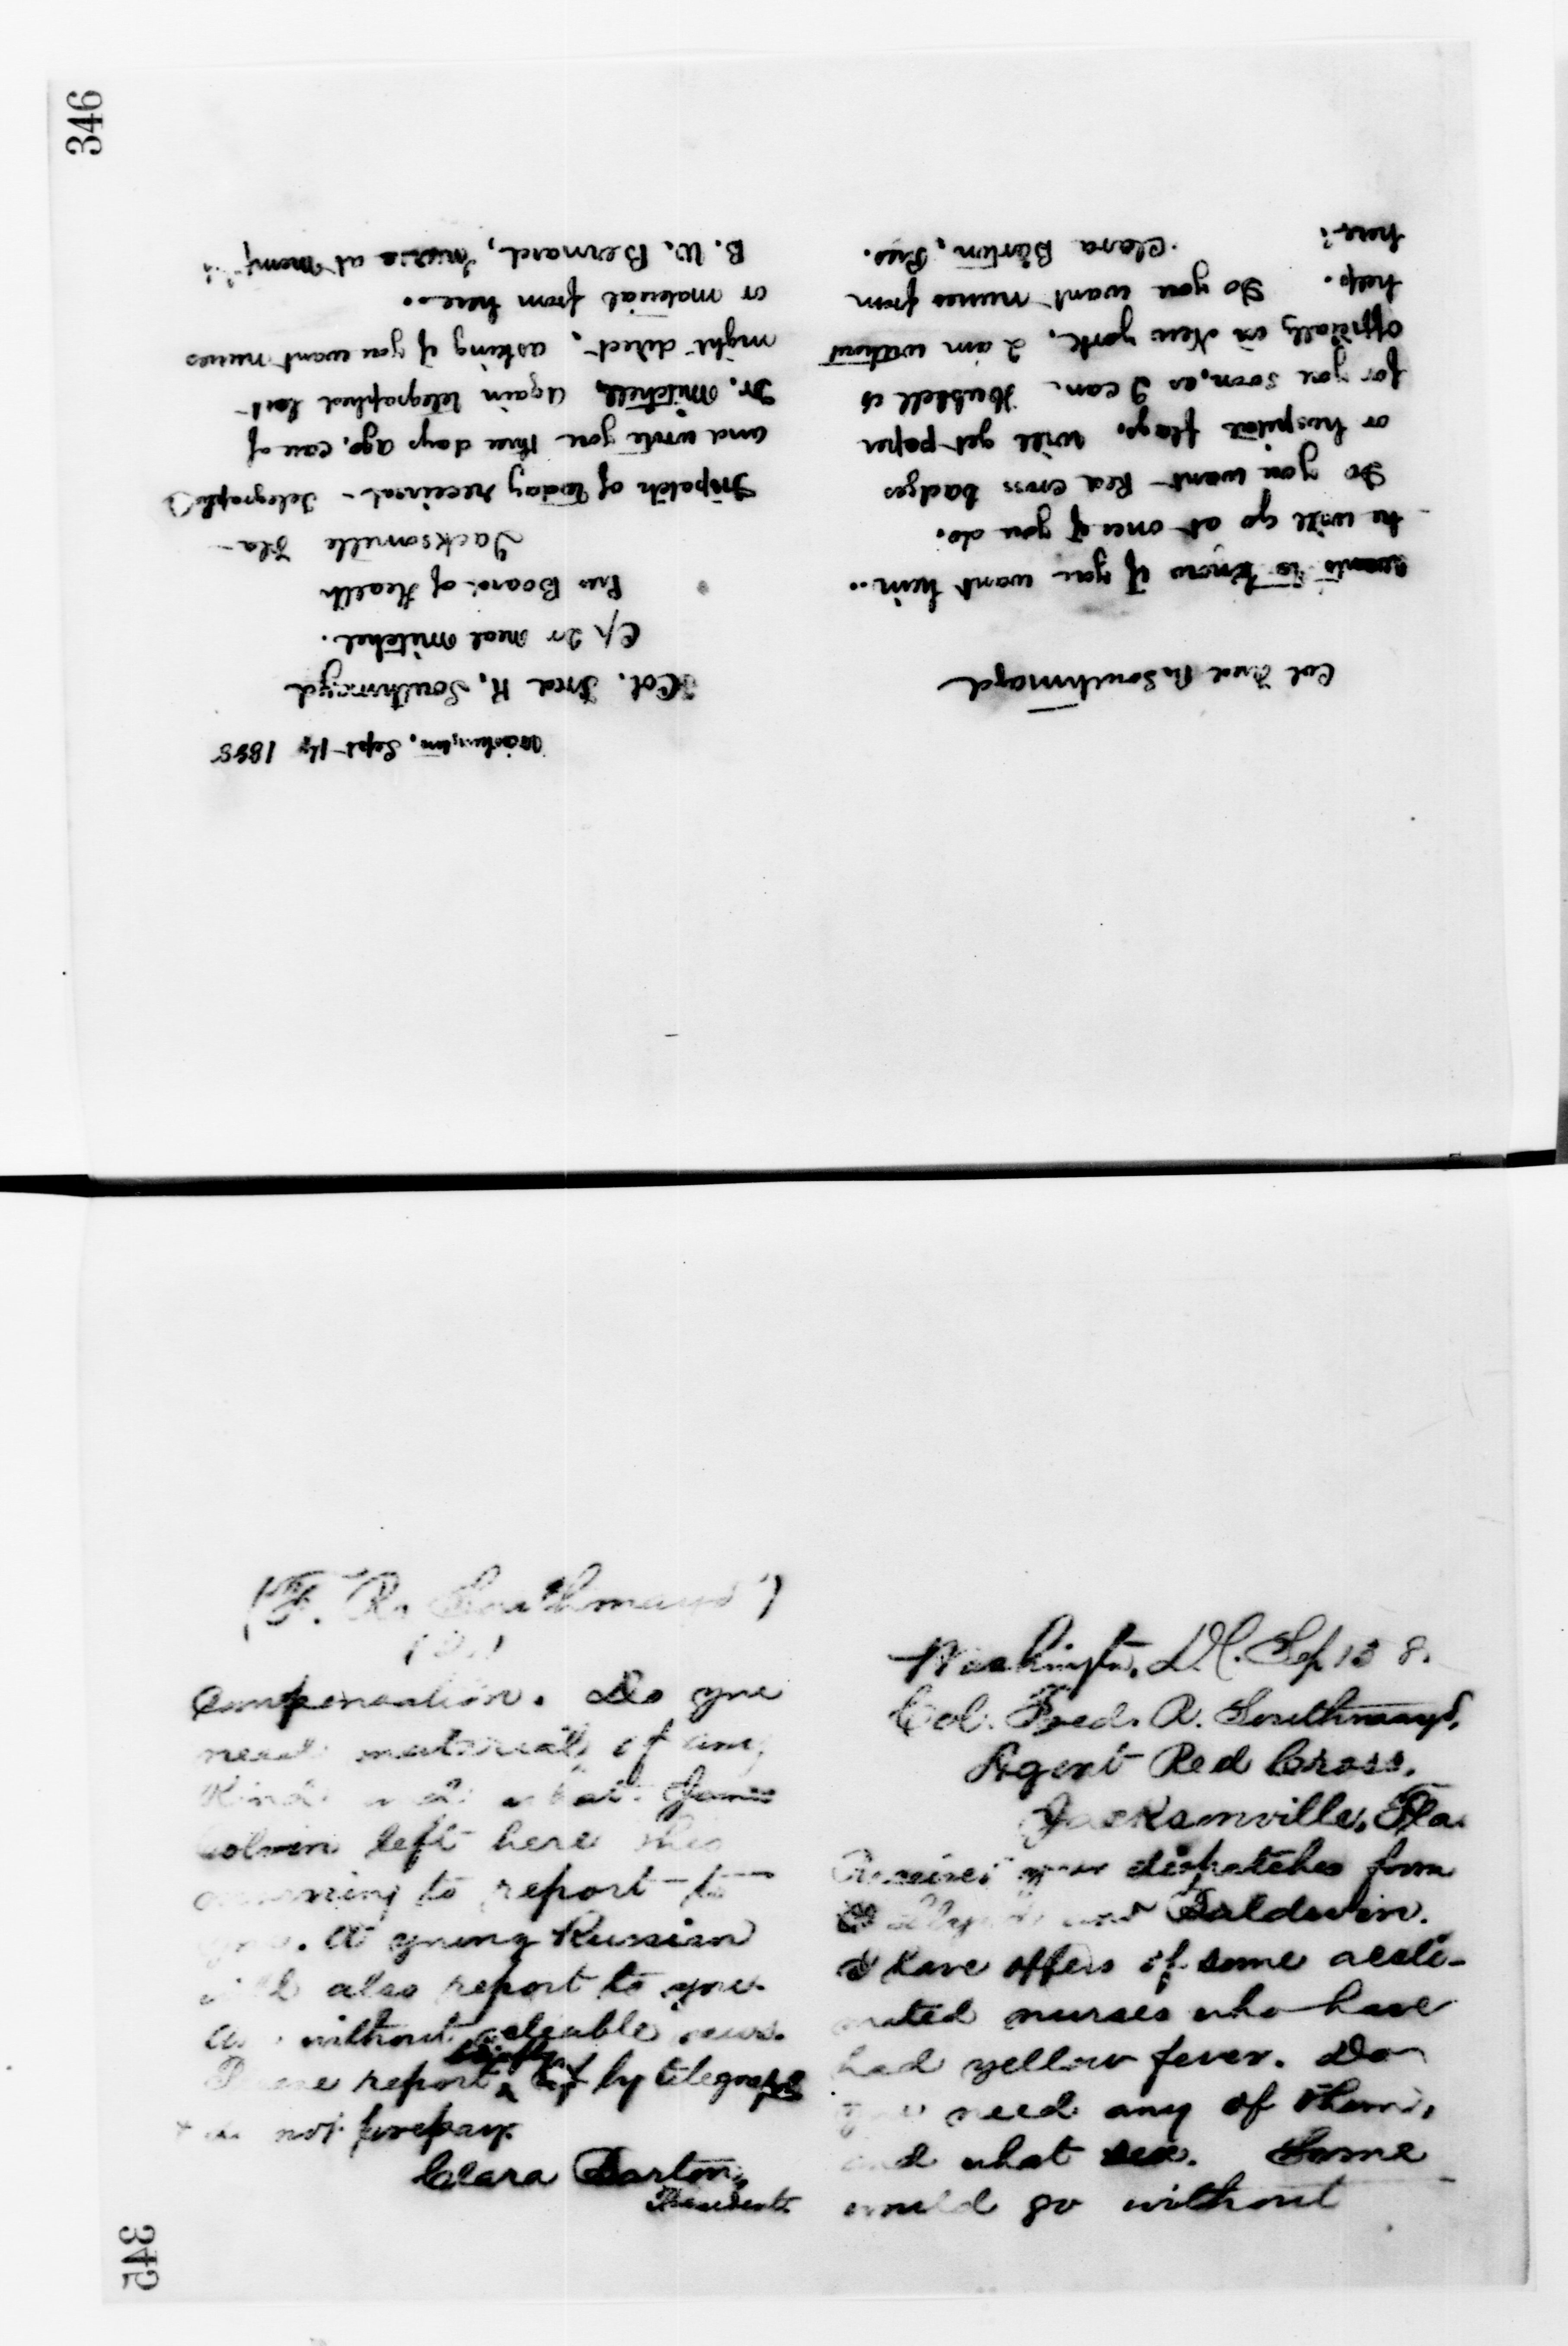 346
Washington, Sept 14 1888
Col. Fred R. Southmayd
c/o Dr Neal Mitchel.
Pres Board of Health
Jacksonville Fla-
Dispatch of today received - Telegraphed
and wrote you three days ago, care of
Dr. Mitchell, again telegraphed last
night direct, asking if you want nurses
or material from here..
B. W. Bernard, nurse at
Col Fred R. Southmayd
wants to know if you want him..
he will go at once if you do.
Do you want Red cross badges
or hospital flags. will get paper
for you soon, as I can. Hubbell is
officially in New York. I am without
help. Do you want nurses from
here?
Clara Barton, Pres.
Washington, D.C. Sep 13 8.
Col. Fred. R. Southmayd,
Agent Red Cross.
Jacksonville, Fla.
Received your dispatches from
and Baldwin.
I have offers of some accli-
mated nurses who have
had yellow fever. Do
you need any of them,
and what sex. Some
would go without
(F. R. Southmayd)
compensation. Do you
need material of any
kind and what. James
left here this
morning to report to
you. A young Russian
will also report to you.
without reliable news.
Please report by telegraph
not prepay.
Clara Barton,
President.
345